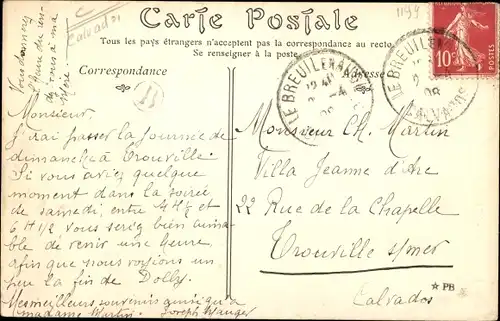 Carte Postale
Tous les pays étrangers n'acceptent pas la correspondance au recto
Se renseigner à la poste
Correspondance
Adresse
1194
Calvados
Vous donnerez
de vous à ma
Mère.
10c
LE BREUIL EN AUGE
12 40
08
LE BREUIL EN
08
CALVADOS
B
Monsieur,
J'irai passer la journée de
dimanche à Trouville.
Si vous aviez quelque
moment dans la soirée
de samedi, entre 4 H ½ et
6 H ½ vous seriez bien aima-
ble de venir une heure
afin que nous voyions un
peu la fin de Dolly.
Mes meilleurs souvenirs ainsi qu'a
madame Martin. Joseph Wauger
Monsieur Ch. Martin
Villa Jeanne d'Arc
22 Rue de la Chapelle
Trouville s/mer
Calvados
PB